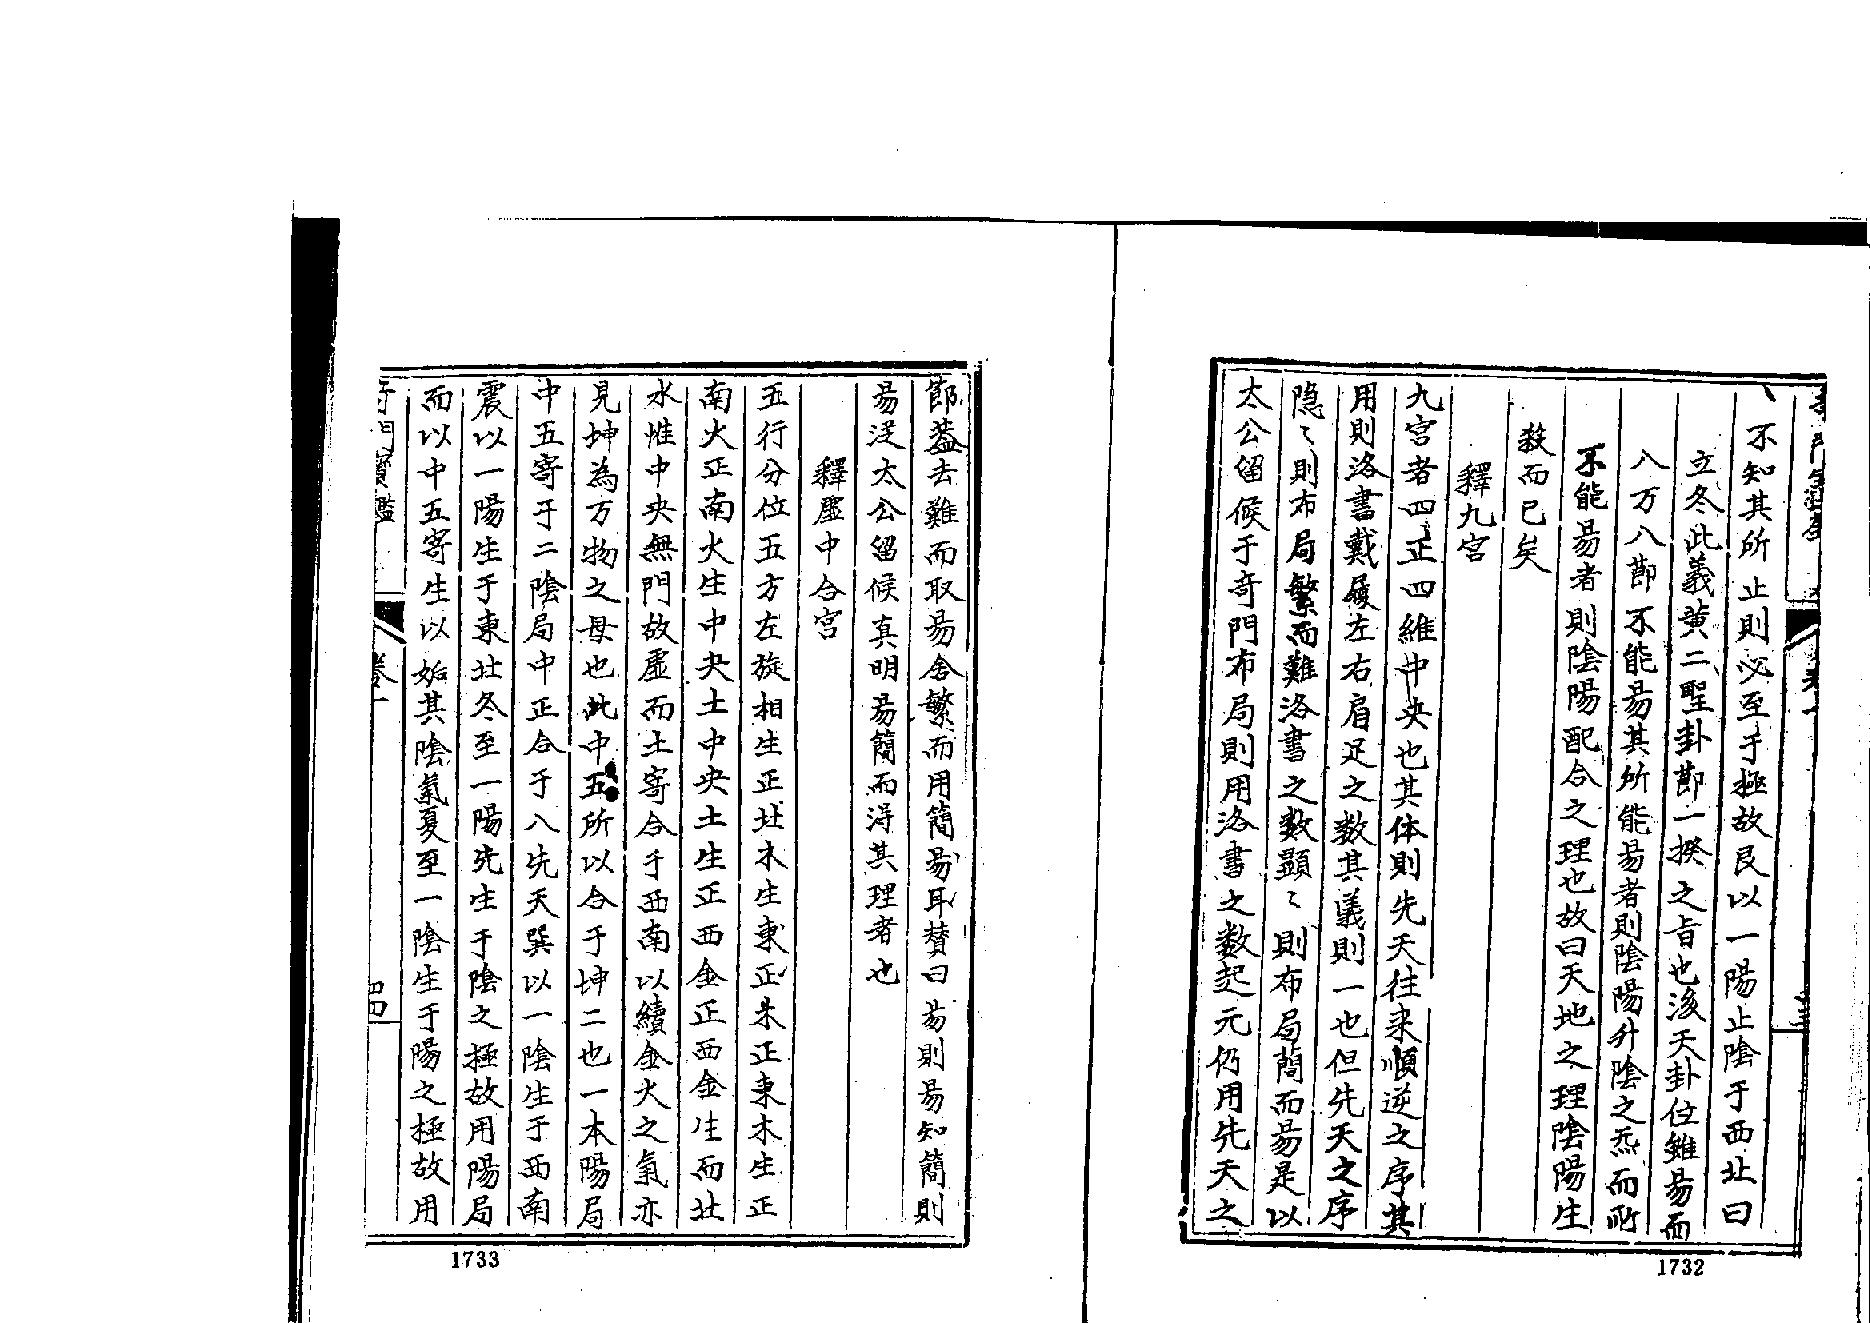 不知其所止則必至于極故艮以一陽止陰于西北曰
立冬此義黄二聖卦節一揆之旨也後天卦位雖易而
八万八節不能易其所能易者則陰陽升陰之炁而所
不能易者則陰陽配合之理也故曰天地之理陰陽生
殺而已矣
釋九宮
九宮者四正四維中央也其体則先天往来順逆之序其
用則洛書戴履左右肩足之数其義則一也但先天之序
隐〻則布局繁而難洛書之数顯〻則布局簡而易是以
太公留候于奇門布局則用洛書之数起元仍用先天之
1732
節葢去難而取易舍繁而用簡易耳賛曰易則易知簡則
易従太公留候真明易簡而得其理者也
釋虚中合宮
五行分位五方左旋相生正北水生東正木正東木生正
南火正南火生中央土中央土生正西金正西金生而北
水惟中央無門故虚而土寄合于西南以續金火之氣亦
見坤為万物之母也此中五所以合于坤二也一本陽局
中五寄于二陰局中正合于八先天巽以一陰生于西南
震以一陽生于東北冬至一陽先生于陰之極故用陽局
而以中五寄生以始其陰氣夏至一陰生于陽之極故用
奇門寳鑑
卷一
四
1733